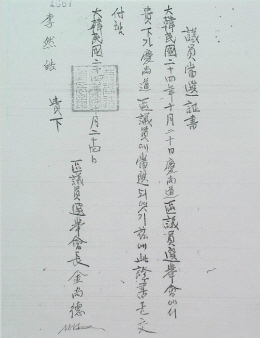 議員當選証書
大韓民國二十四年十月二十日慶尚道區議員選擧會에서
貴下가慶尚道區議員에當選되엿기玆에此證書를交
付함
大韓民國二十四年 月二十四日
區議員選擧會長金尚德
李然皓 貴下